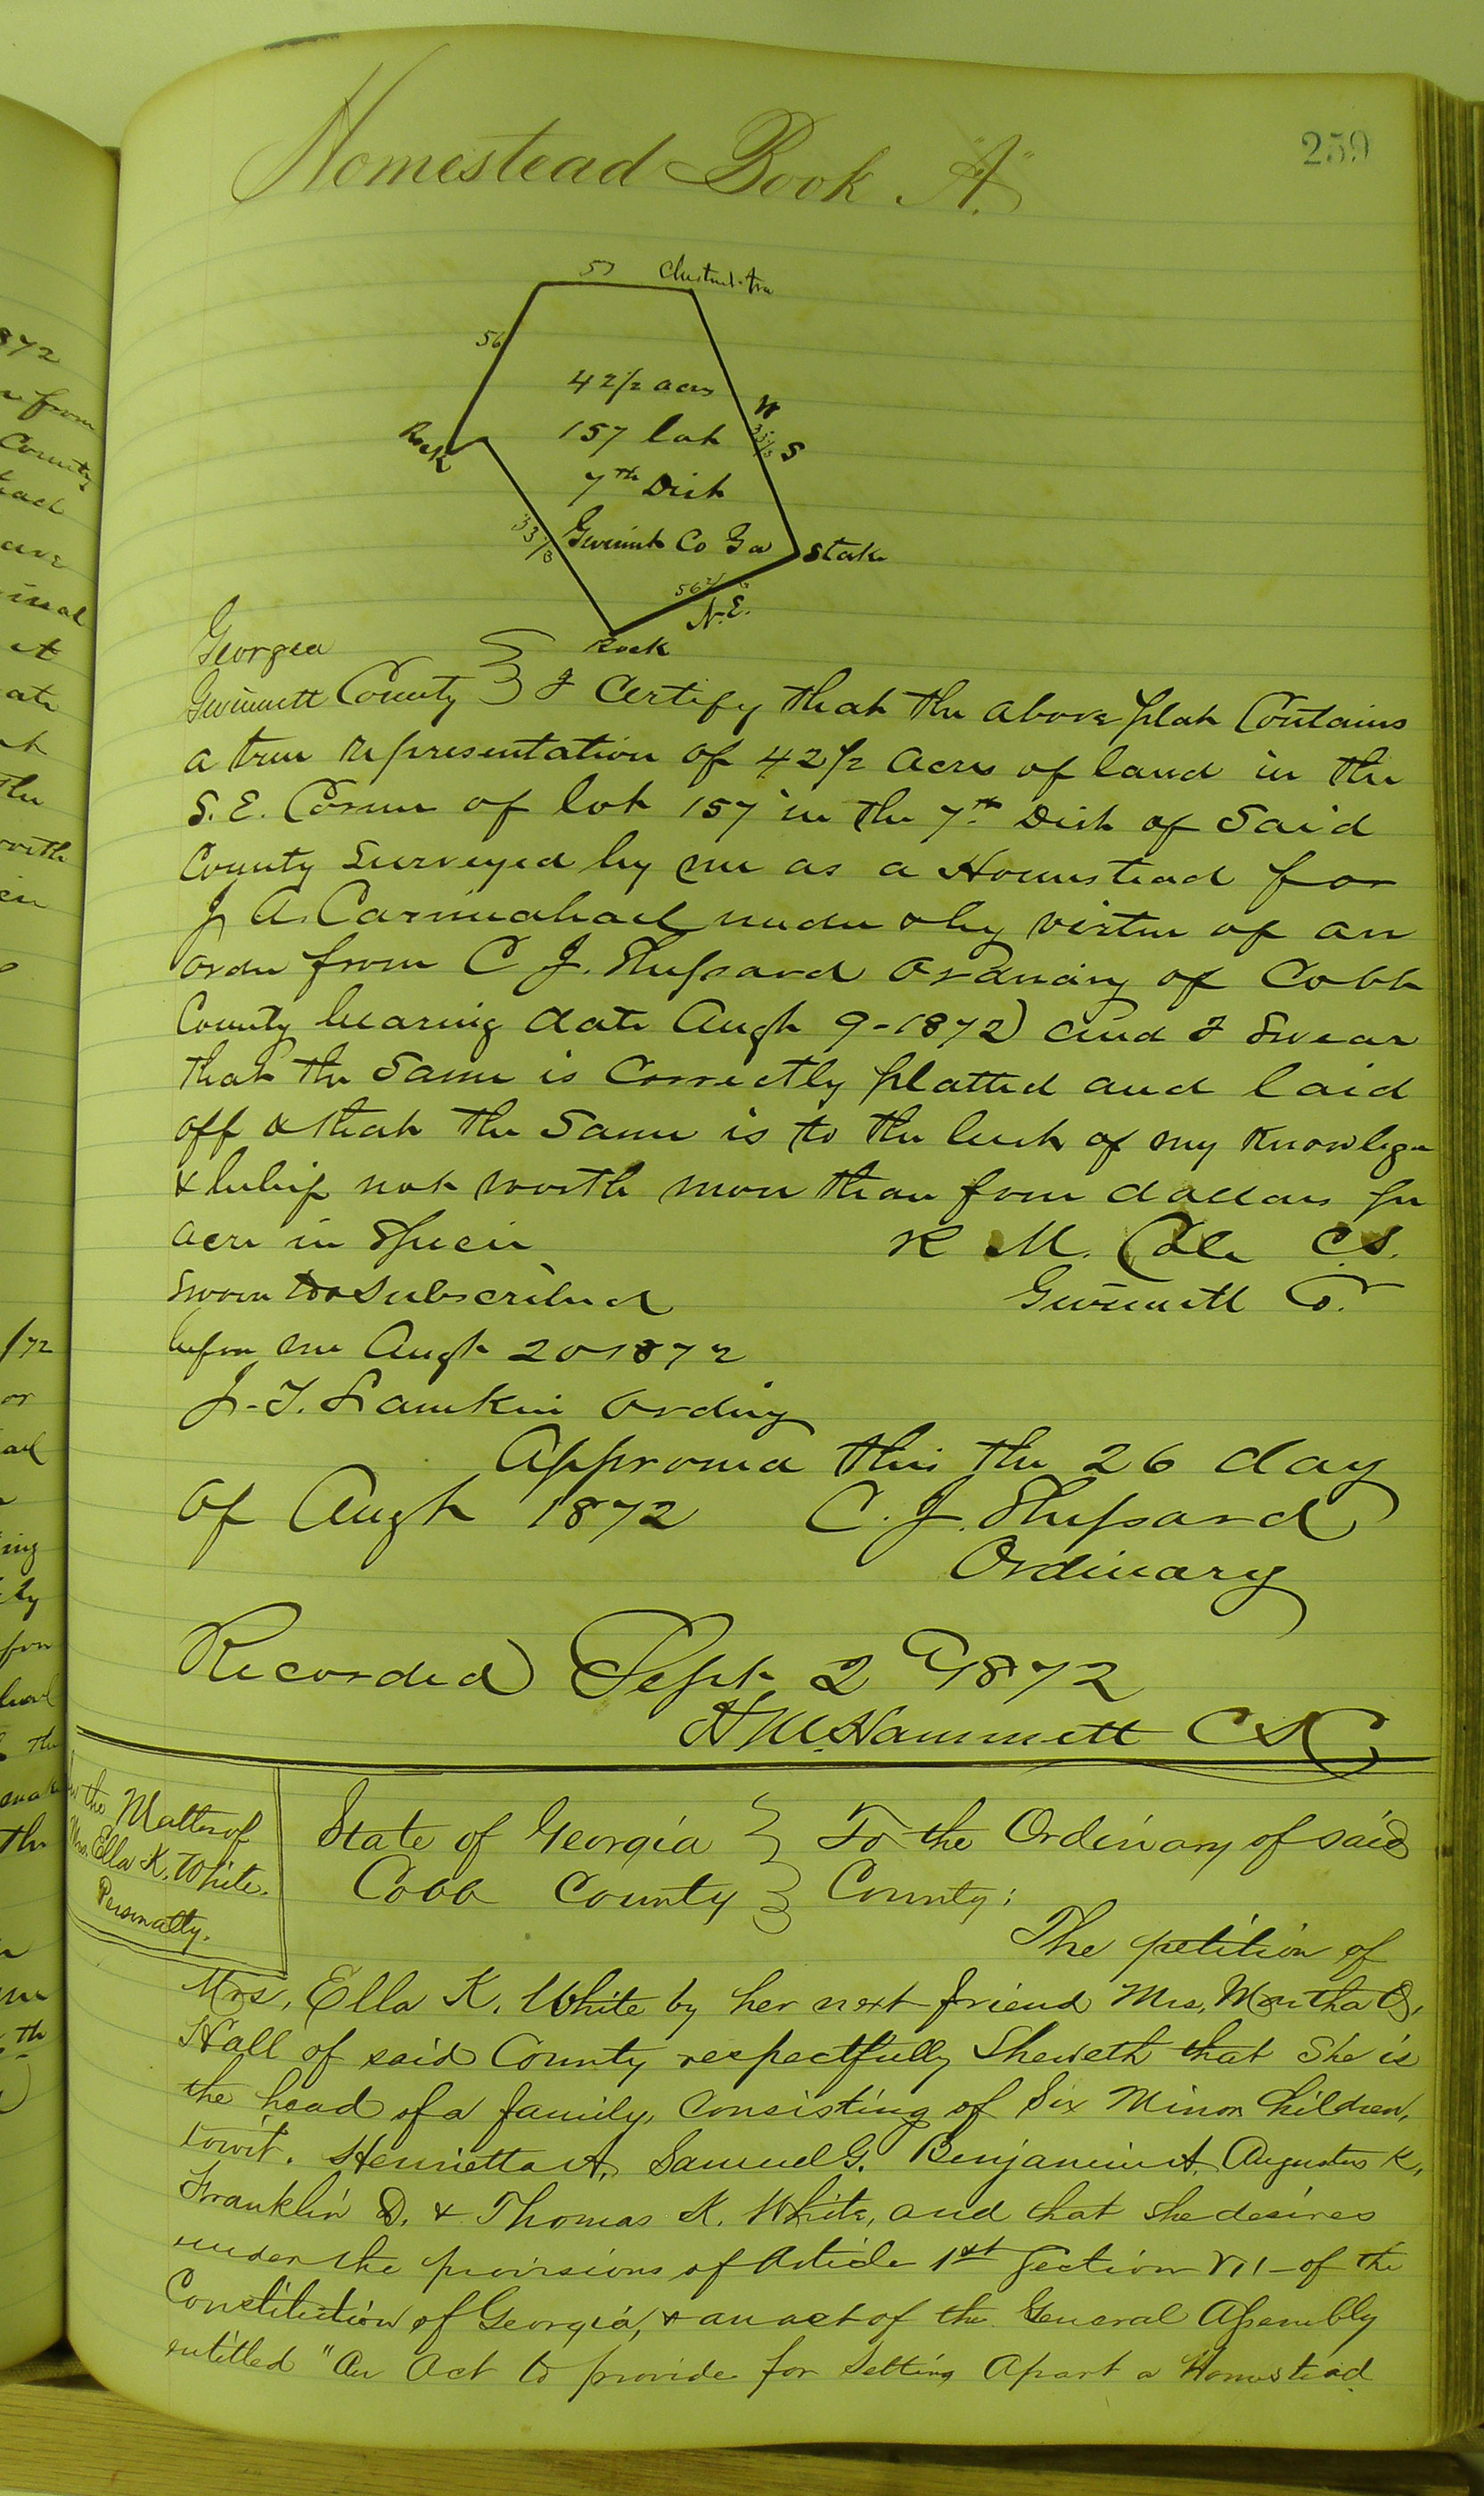 Homestead Book "A."
259
57 Chestnut tree
56
42 1/2 acres
W
157 lot
33 1/3 S
Rock
7th Dist
33 1/3
Gwinnett Co Ga
Stake
56 2/3
N.E.
Rock
Georgia
Gwinnett County } I Certify that the above plat Contains
a true representation of 42 1/2 acres of land in the
S. E. Corner of lot 157 in the 7th Dist of Said
County Surveyed by me as a Homestead for
J A. Carmichael under & by virtue of an
order from C J. Shepard Ordinary of Cobb
County bearing date Augt 9-1872) and I Swear
that the Same is Correctly platted and laid
off & that the Same is to the best of my Knowlege
& belief not worth more than four dollars per
acre in Specie R M. Cole C.S.
Sworn to & subscribed Gwinnett Co.
before me Augt 20 1872
J. T. Lamkin Ordinary
Approved this the 26 day
of Augt 1872 C. J. Shepard
Ordinary
Recorded Sept 2d 1872
H M Hammett CSC
In the Matter of
Mrs. Ella K. White.
Personalty.
State of Georgia } To the Ordinary of said
Cobb County } County;
The petition of
Mrs. Ella K. White by her next friend Mrs. Martha
Hall of said County respectfully Sheweth that She is
the head of a family, Consisting of Six Minor Children,
towit. Henrietta A. Samuel G. Benjamin A. Augustus K.
Franklin D. & Thomas K. White, and that she desires
under the provisions of Article 1st Section VII - of the
Constitution of Georgia, & an act of the General Assembly
entitled "An Act to provide for Setting Apart a Homestead